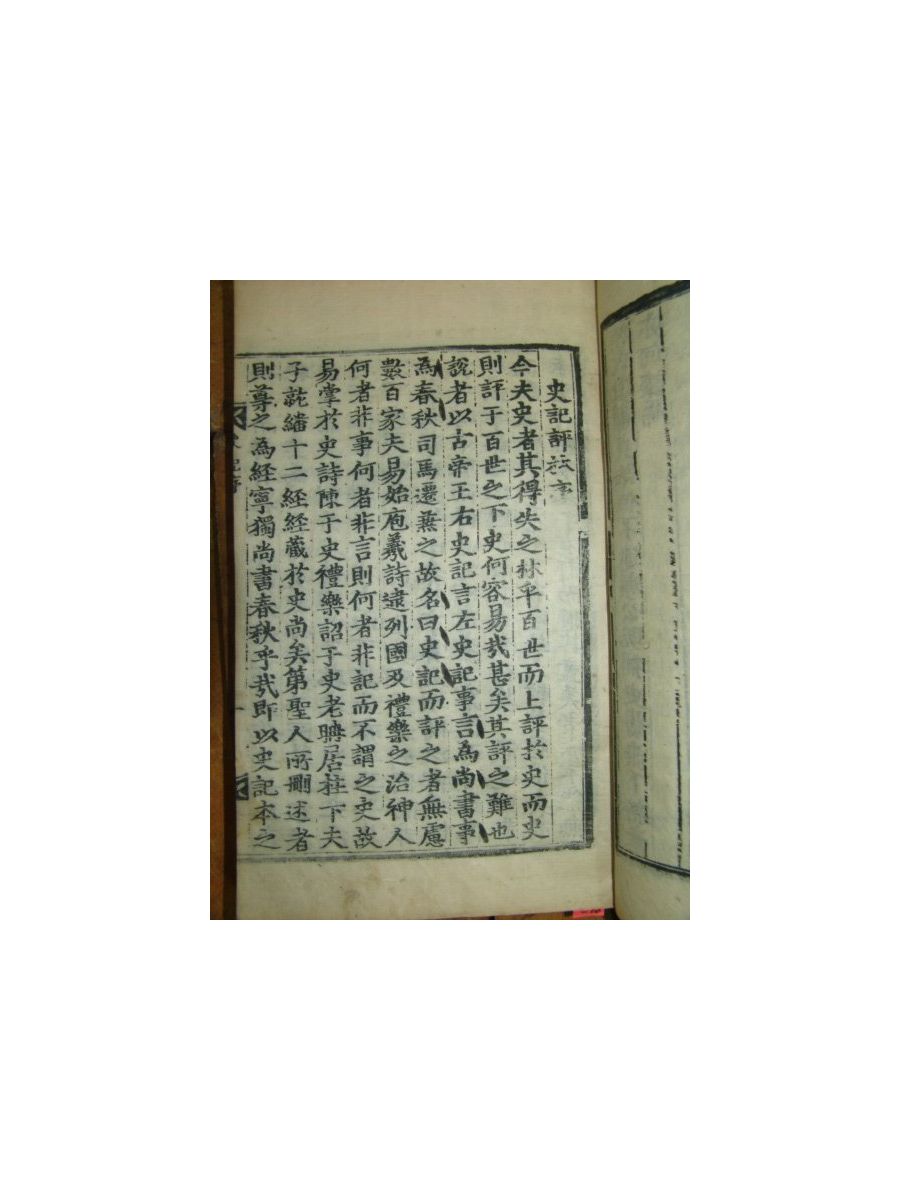 史記評林序
今夫史者其得失之林乎百世而上評於史而史
則評于百世之下史何容易哉甚矣其評之難也
說者以古帝王右史記言左史記事言為尚書事
為春秋司馬遷兼之故名曰史記而評之者無慮
數百家夫易始庖羲詩逮列國及禮樂之治神人
何者非事何者非言則何者非記而不謂之史故
易掌於史詩陳于史禮樂詔于史老聃居柱下夫
子蓰繙十二經經藏於史尚矣第聖人所刪述者
則尊之為經寧獨尚書春秋乎哉即以史記本之